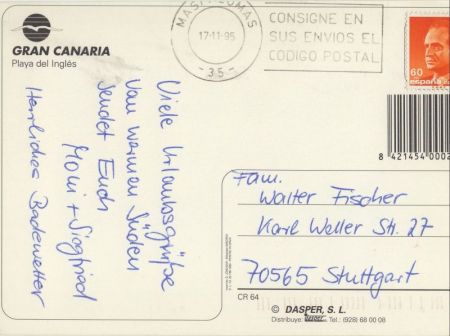 GRAN CANARIA
Playa del Inglés
MASPALOMAS
17-11-95
-35-
CONSIGNE EN
SUS ENVIOS EL
CODIGO POSTAL
60
españa
8 421454 0002
Viele Urlaubsgrüße
vom warmen Süden
sendet Euch
Moni + Siegfried
Herrliches Badewetter
Fam.
Walter Fischer
Karl Weller Str. 27
70565 Stuttgart
CR 64
© DASPER, S. L.
Distribuye: Tel.: (928) 68 00 08